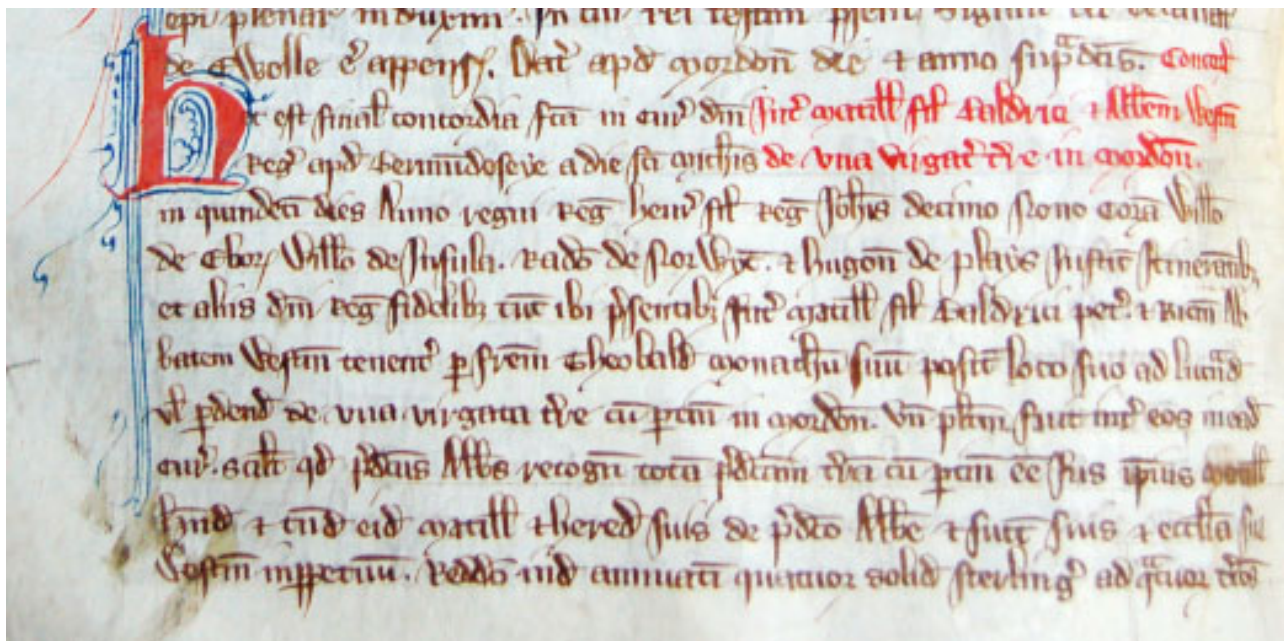 epi plenar induximꝰ. In cuiꝰ rei testim p̄sent Sigillū
de Ewelle ē appens. Dat̄ apd̄ Mordon̄ die ⁊ anno sup̄ᵃdc̄is. Concord
Hec est final̄ concordia fc̄a in cur̄ dn̄i Int̄ Matill̄ fil̄ Baldrici ⁊ Abb̄em Westm̄
Reg̅ apd̄ Bermūdeseye a die sc̄i Mich̄is de vna virgat̄ t̄re in Mordon̄.
in quindeci dies Anno regni Reg̅ henr̄ fil̄ Reg̅ Joh̄is decimo Nono Corā Will̄o
de Ebor̄ Will̄o de Insula. Rad̄o de Norwyc̄. ⁊ hugon̄ de plays Justic̄ Itinerantibꝫ
et aliis dn̄i Reg̅ fidelibꝫ tūc ibi p̄sentibꝫ Int̄ Matill̄ fil̄ Baldrici pet̄. ⁊ Ric̄m Ab
batem Westm̄ tenent̄ p̱ fr̄em Theobald̄ Monachū suū posit̄ loco suo ad luc̄ᵃnd̄
ul̄ p̱dend̄ de vna virgata t̄re cū p̱tin̄ in Mordon̄. Vn̄ pl̄itm̄ fuit int̄ eos in ead̄
cur̄. scil̄t qd̄ p̄dc̄us Abb̄s recogn̄ totā p̄dc̄am t̄rā cū p̱tin̄ ēe Jus ip̄ius Matill̄
h̄nd̄ ⁊ tn̄d̄ eid̄ Matill̄ ⁊ hered̄ suis de p̄dc̄o Abb̄e ⁊ succ̄ suis ⁊ eccl̄ia sua
Westm̄ inp̱petuū. Reddēd̄ ind̄ annuatī quatuor solid̄ sterling̅ ad qᵃtuor t̄mīos